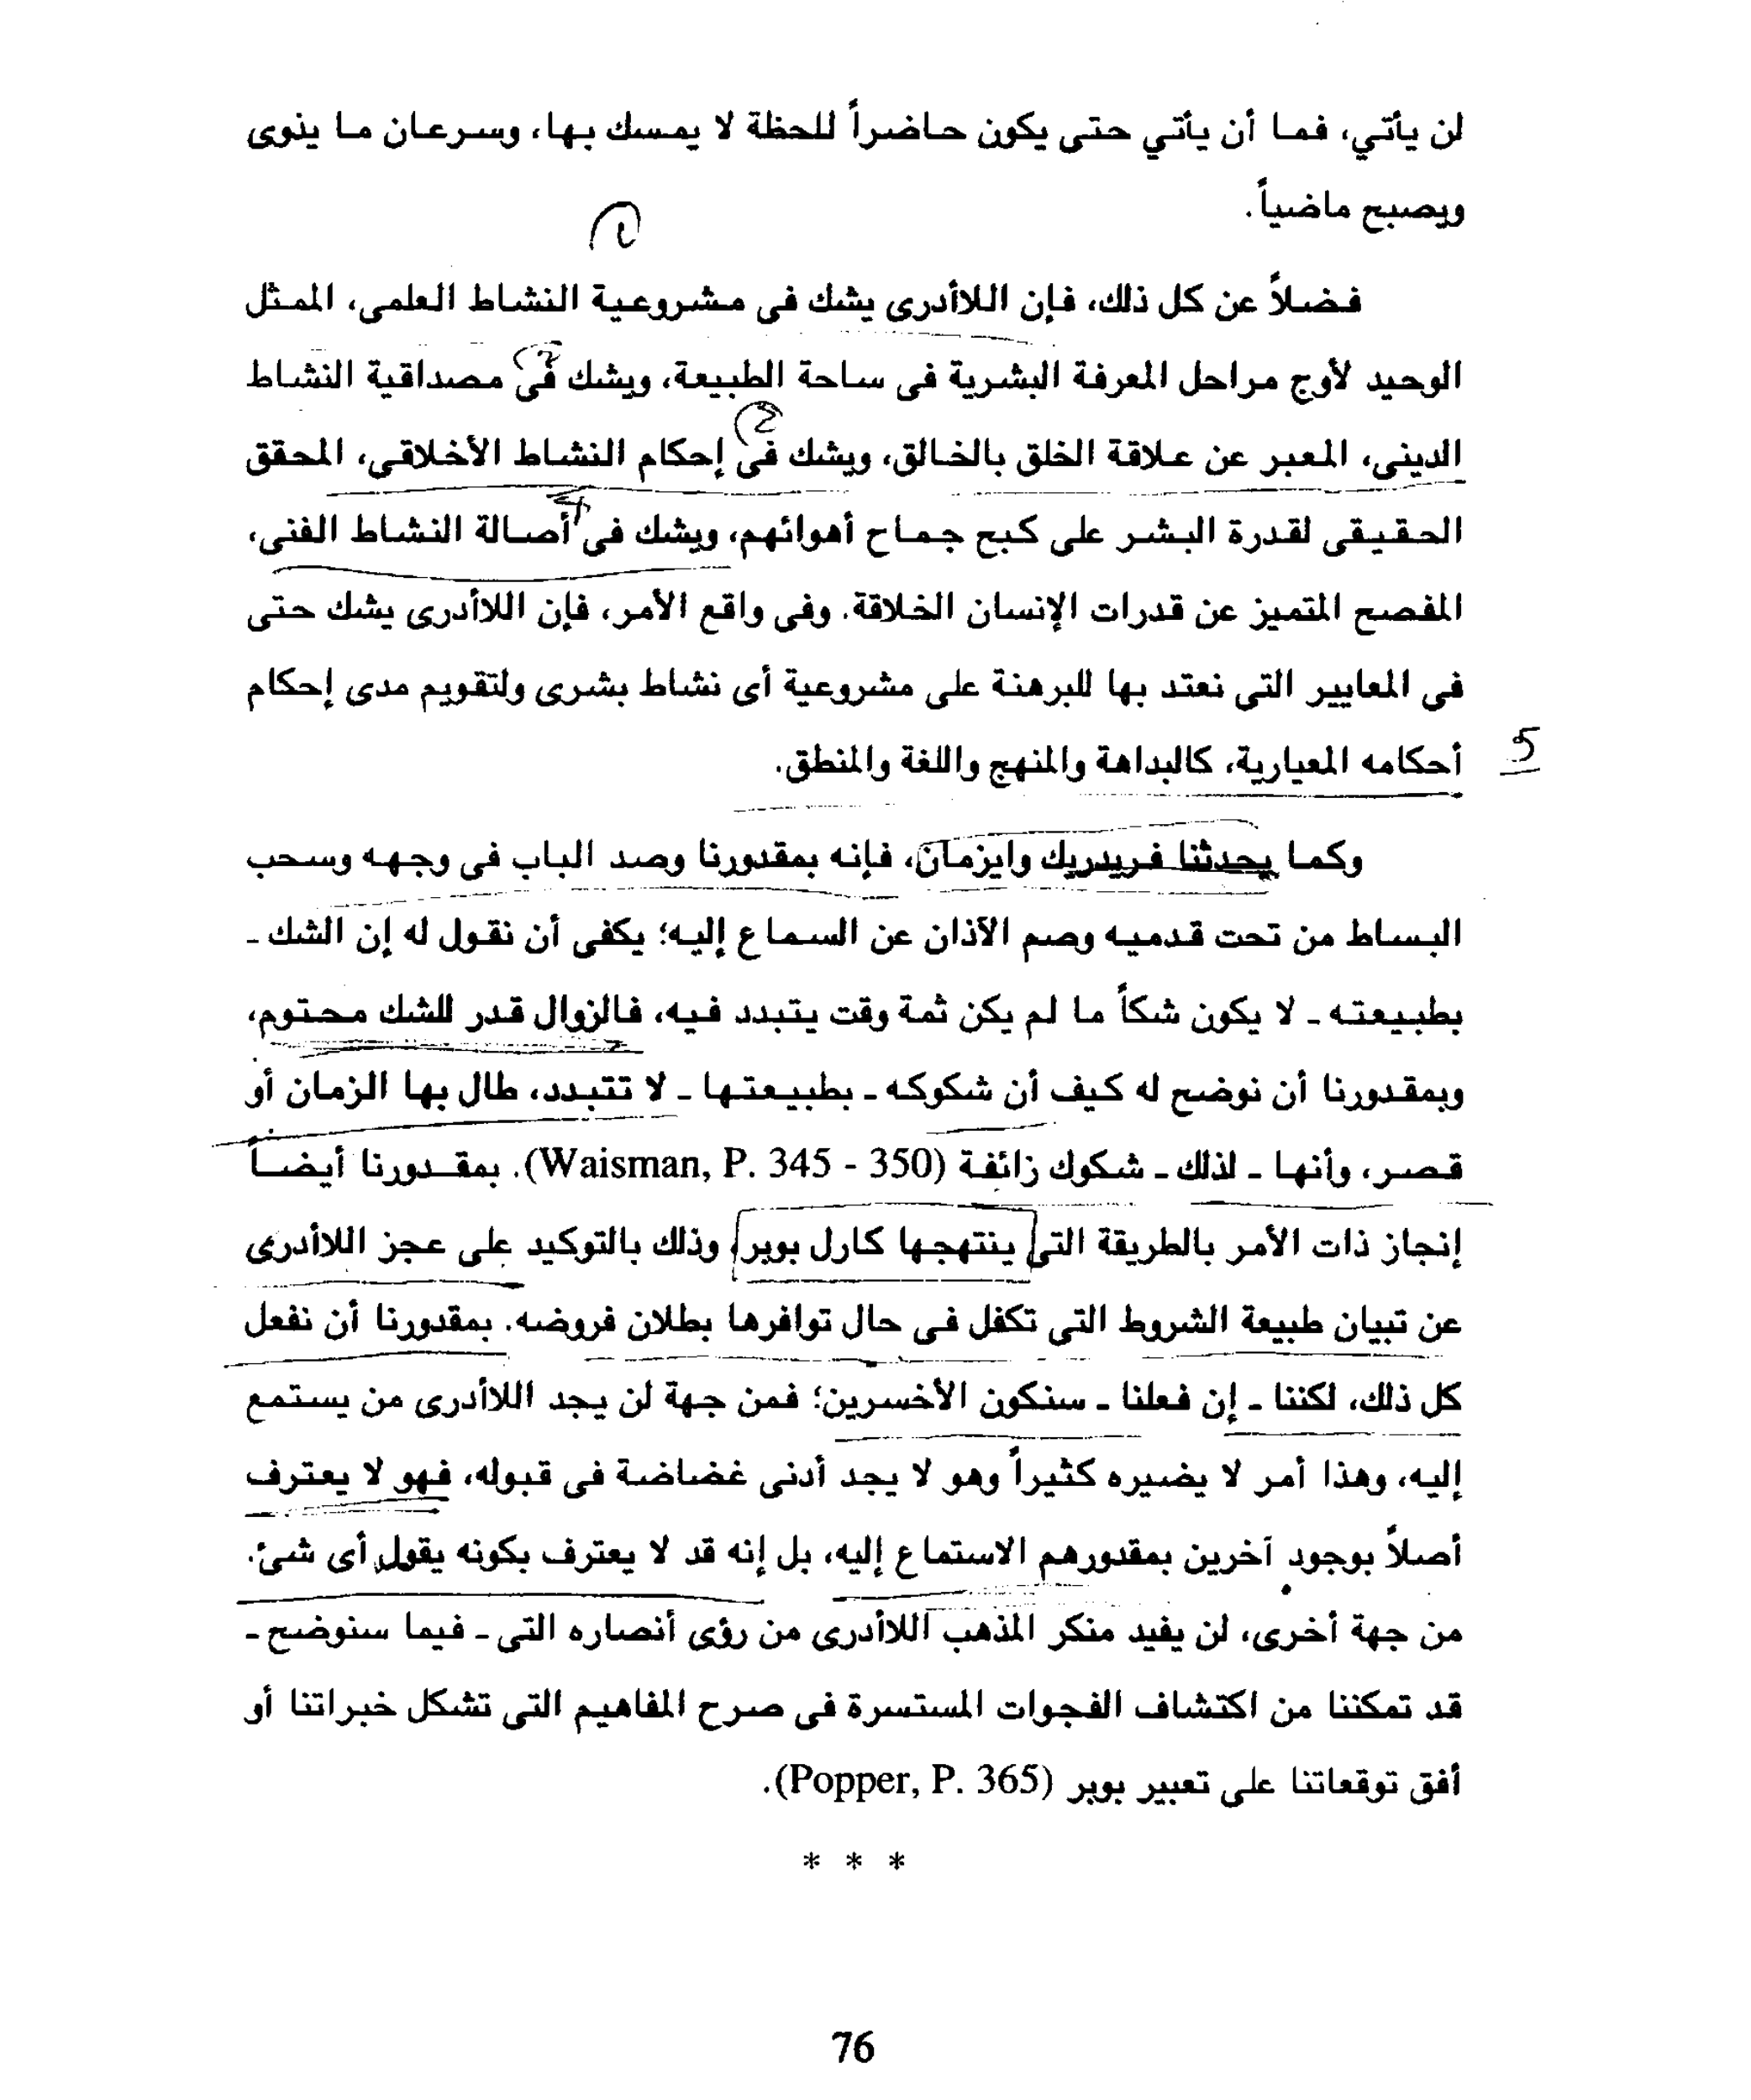 لن يأتي، فما أن يأتي حتى يكون حاضراً للحظة لا يمسك بها، وسرعان ما ينوى
ويصبح ماضياً.
فضلاً عن كل ذلك، فإن اللاأدرى يشك فى مشروعية النشاط العلمى، الممثل
الوحيد لأوج مراحل المعرفة البشرية فى ساحة الطبيعة، ويشك فى مصداقية النشاط
2
الدينى، المعبر عن علاقة الخلق بالخالق، ويشك فى إحكام النشاط الأخلاقى، المحقق
الحقيقى لقدرة البشر على كبح جماح أهوائهم، ويشك فى أصالة النشاط الفنى،
4
المفصح المتميز عن قدرات الإنسان الخلاقة. وفى واقع الأمر، فإن اللاأدرى يشك حتى
فى المعايير التى نعتد بها للبرهنة على مشروعية أى نشاط بشرى ولتقويم مدى إحكام
5
أحكامه المعيارية، كالبداهة والمنهج واللغة والمنطق.
وكما يحدثنا فريدريك وايزمان، فإنه بمقدورنا وصد الباب فى وجهه وسحب
البساط من تحت قدميه وصم الآذان عن السماع إليه؛ يكفى أن نقول له إن الشك -
بطبيعته - لا يكون شكاً ما لم يكن ثمة وقت يتبدد فيه، فالزوال قدر للشك محتوم،
وبمقدورنا أن نوضح له كيف أن شكوكه - بطبيعتها - لا تتبدد، طال بها الزمان أو
قصر، وأنها - لذلك - شكوك زائفة (Waisman, P. 345 - 350). بمقدورنا أيضاً
إنجاز ذات الأمر بالطريقة التى ينتهجها كارل بوبر، وذلك بالتوكيد على عجز اللاأدرى
عن تبيان طبيعة الشروط التى تكفل فى حال توافرها بطلان فروضه. بمقدورنا أن نفعل
كل ذلك، لكننا - إن فعلنا - سنكون الأخسرين؛ فمن جهة لن يجد اللاأدرى من يستمع
إليه، وهذا أمر لا يضيره كثيراً وهو لا يجد أدنى غضاضة فى قبوله، فهو لا يعترف
أصلاً بوجود آخرين بمقدورهم الاستماع إليه، بل إنه قد لا يعترف بكونه يقول أى شئ.
من جهة أخرى، لن يفيد منكر المذهب اللاأدرى من رؤى أنصاره التى - فيما سنوضح -
قد تمكننا من اكتشاف الفجوات المستسرة فى صرح المفاهيم التى تشكل خبراتنا أو
أفق توقعاتنا على تعبير بوبر (Popper, P. 365).
* * *
76